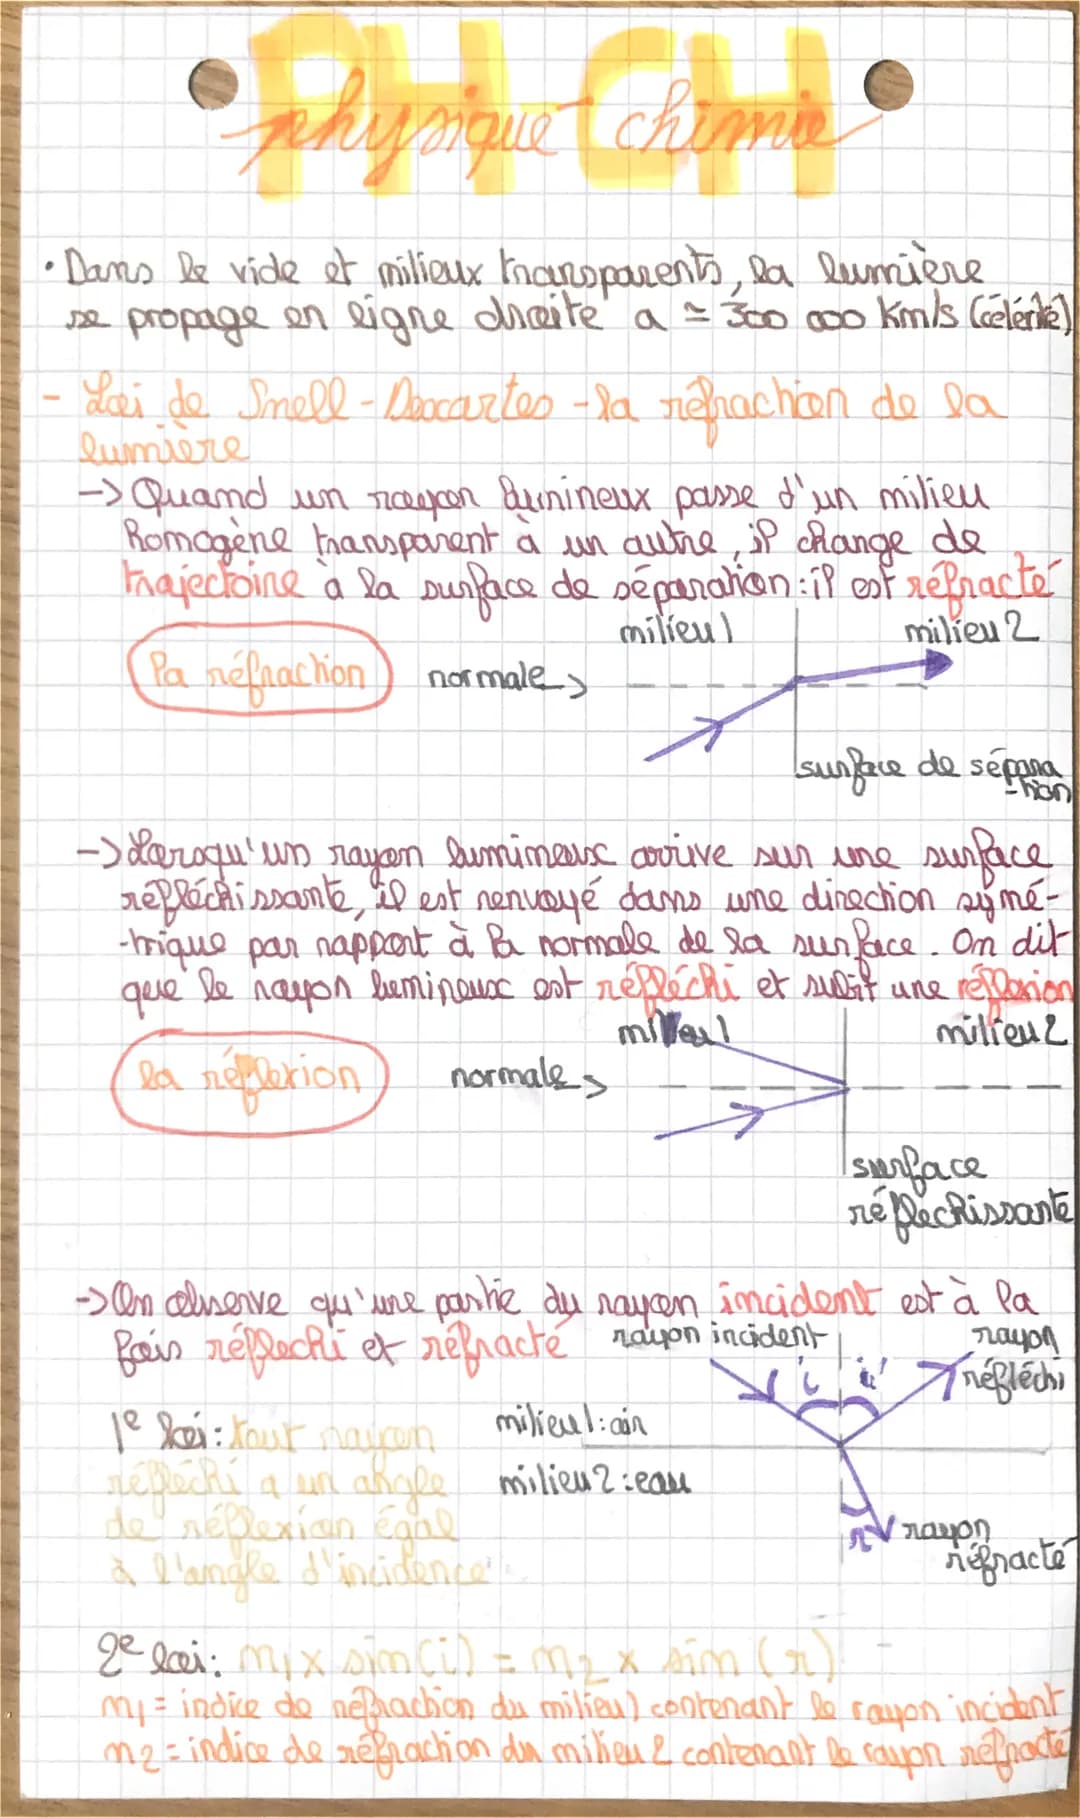 PH-CH
physique chimie
• Dans le vide et milieux transparents, la lumière
se propage en ligne droite a ≃ 300 000 km/s (célérité)
- Loi de Snell-Descartes - la réfraction de la
lumière
-> Quand un rayon lumineux passe d'un milieu
homogène transparent à un autre, il change de
trajectoire à la surface de séparation : il est réfracté
milieu 1
milieu 2
la réfraction
normale >
surface de sépara
-tion
-> Lorsqu'un rayon lumineux arrive sur une surface
réfléchissante, il est renvoyé dans une direction symé-
-trique par rapport à la normale de la surface. On dit
que le rayon lumineux est réfléchi et subit une réflexion
milieu 1
milieu 2
la réflexion
normale >
surface
réflechissante
-> On observe qu'une partie du rayon incident est à la
fois réflechi et réfracté
rayon incident
rayon
réfléchi
i i'
1e loi : tout rayon
réfléchi a un angle
de réflexion égal
à l'angle d'incidence
milieu 1 : air
milieu 2 : eau
r
rayon
réfracté
2e loi : n1 x sin(i) = n2 x sin(r)
n1 = indice de réfraction du milieu 1 contenant le rayon incident
n2 = indice de réfraction du milieu 2 contenant le rayon réfracté